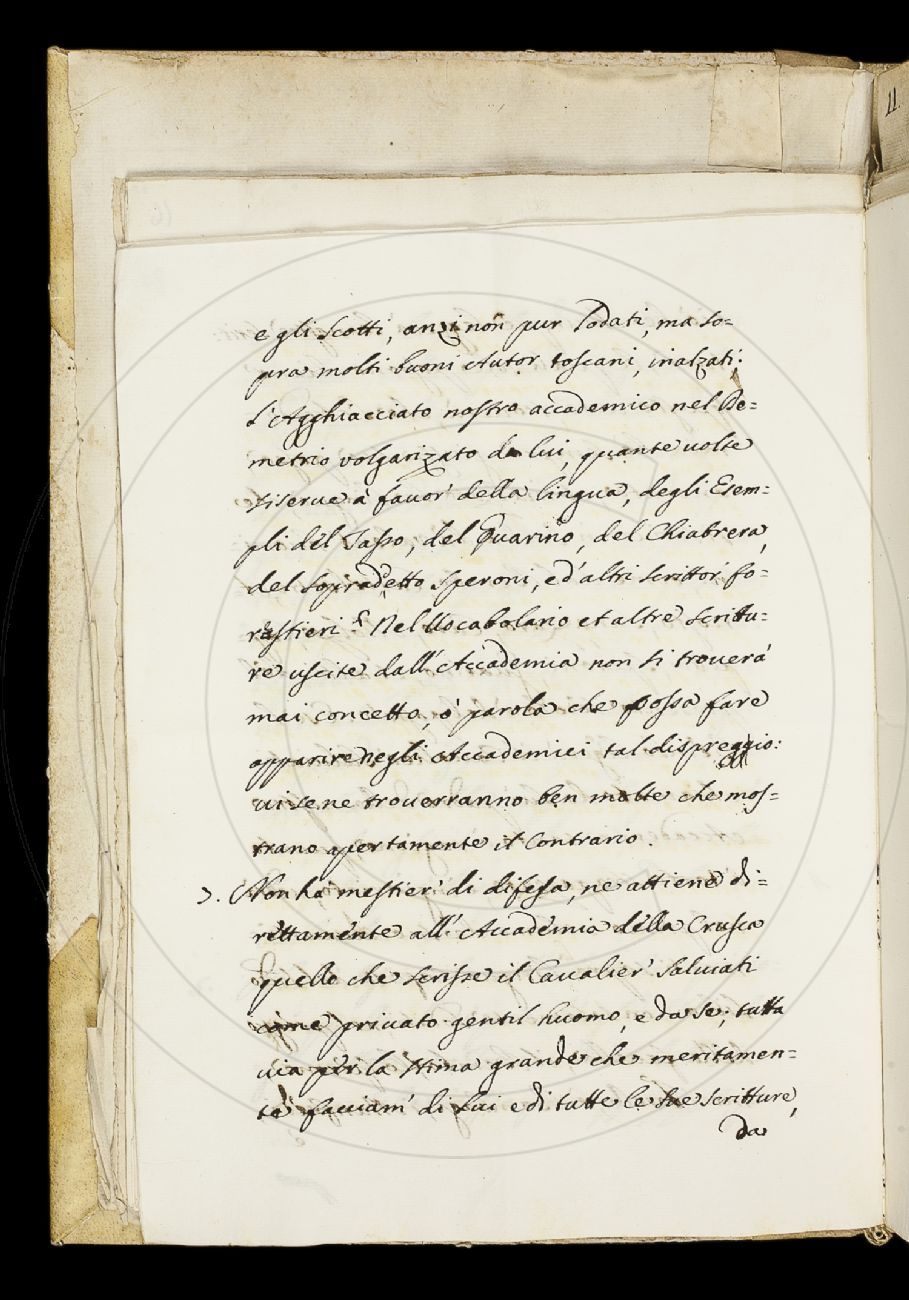 e gli Scotti, anzi non pur lodati, ma so=
pra molti buoni Autor toscani, inalzati;
L'Agghiacciato nostro accademico nel De=
metrio volgarizato da lui, quante uolte
si serue à fauor' della lingua, degli Esem=
pli del Tasso, del Guarino, del Chiabrera,
del sopradetto Speroni, ed'altri scrittor' fo=
restieri? Nel Uocabolario et altre scrittu=
re uscite dall'Accademia non si trouerà
mai concetto, ò parola che possa fare
apparire negli Accademici tal dispreggio:
ui se ne trouerranno ben molte che mos=
trano apertamente il Contrario.
7. Non ha mestier' di difesa, ne attiene di=
rettamente all'Accademia della Crusca
quello che scrisse il Caualier' Saluiati
come priuato gentil huomo, e da se; tutta
uia per la stima grande che meritamen=
te facciam' di Lui e di tutte le sue scritture,
da
11.